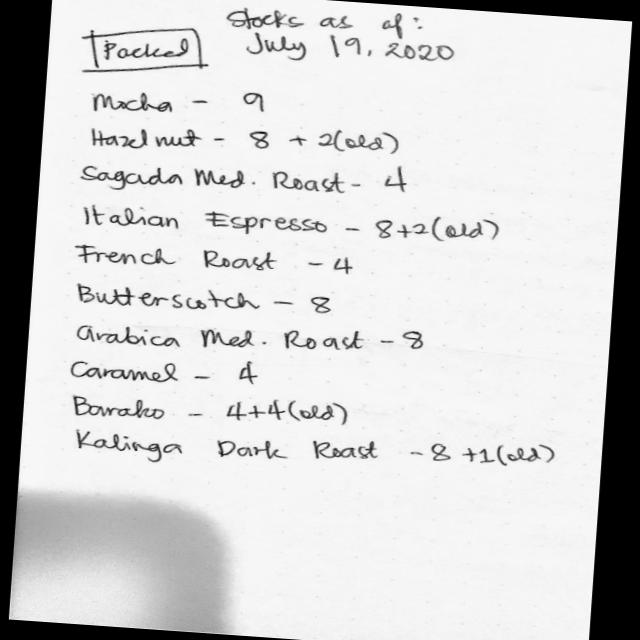 Stocks as of:
Packed July 19, 2020
Mocha - 9
Hazelnut - 8 + 2(old)
Sagada Med. Roast - 4
Italian Espresso - 8+2(old)
French Roast - 4
Butterscotch - 8
Arabica Med. Roast - 8
Caramel - 4
Barako - 4+4(old)
Kalinga Dark Roast - 8 +1(old)